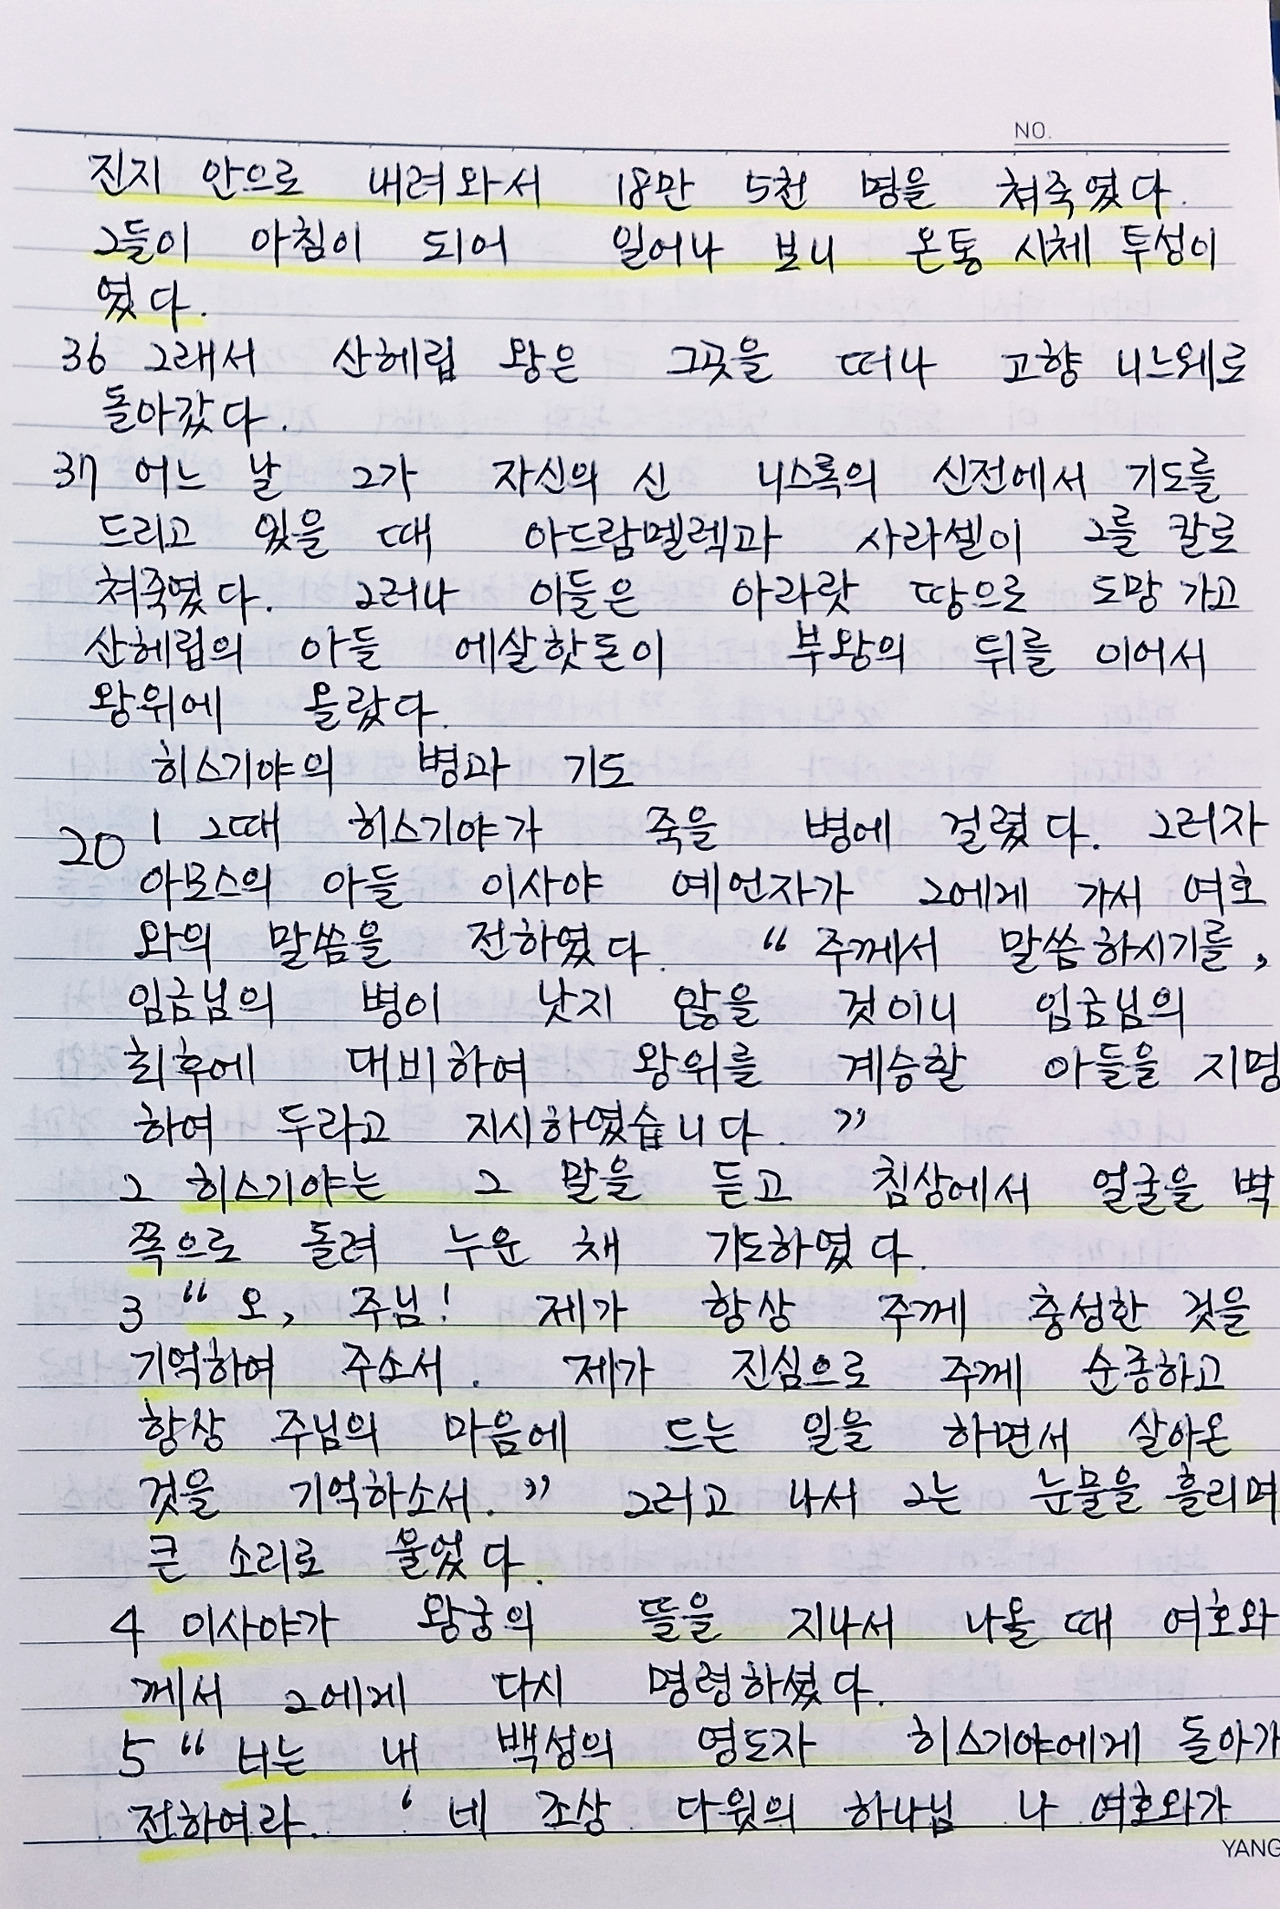 NO.
진지 안으로 내려와서 18만 5천 명을 쳐죽였다.
그들이 아침이 되어 일어나 보니 온통 시체 투성이
였다.
36 그래서 산헤립 왕은 그곳을 떠나 고향 니느웨로
돌아갔다.
37 어느 날 그가 자신의 신 니스록의 신전에서 기도를
드리고 있을 때 아드람멜렉과 사라셀이 그를 칼로
쳐죽였다. 그러나 이들은 아라랏 땅으로 도망가고
산헤립의 아들 에살핫돈이 부왕의 뒤를 이어서
왕위에 올랐다.
히스기야의 병과 기도
20 1 그때 히스기야가 죽을 병에 걸렸다. 그러자
아모스의 아들 이사야 예언자가 그에게 가서 여호
와의 말씀을 전하였다. “ 주께서 말씀하시기를,
임금님의 병이 낫지 않을 것이니 임금님의
최후에 대비하여 왕위를 계승할 아들을 지명
하여 두라고 지시하였습니다. ”
2 히스기야는 그 말을 듣고 침상에서 얼굴을 벽
쪽으로 돌려 누운 채 기도하였다.
3 “ 오, 주님! 제가 항상 주께 충성한 것을
기억하여 주소서. 제가 진심으로 주께 순종하고
항상 주님의 마음에 드는 일을 하면서 살아온
것을 기억하소서. ” 그러고 나서 그는 눈물을 흘리며
큰 소리로 울었다.
4 이사야가 왕궁의 뜰을 지나서 나올 때 여호와
께서 그에게 다시 명령하셨다.
5 “ 너는 내 백성의 영도자 히스기야에게 돌아가
전하여라. ‘ 네 조상 다윗의 하나님 나 여호와가
YANG